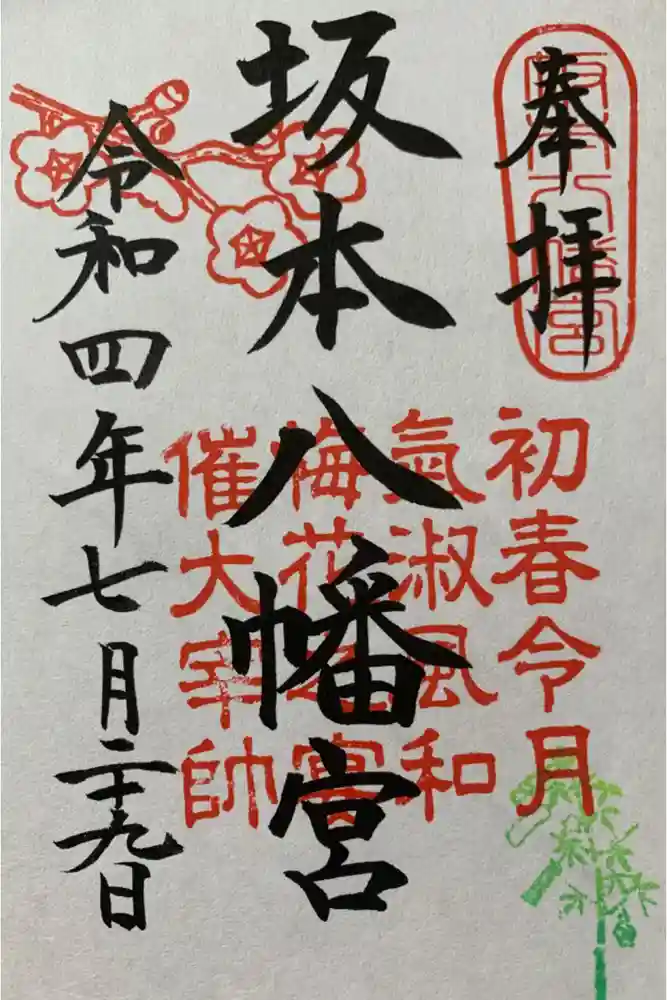 奉拝
坂本八幡宮
初春令月
氣淑風和
梅花之宴
催大宰帥
坂本八幡宮
令和四年七月二十九日